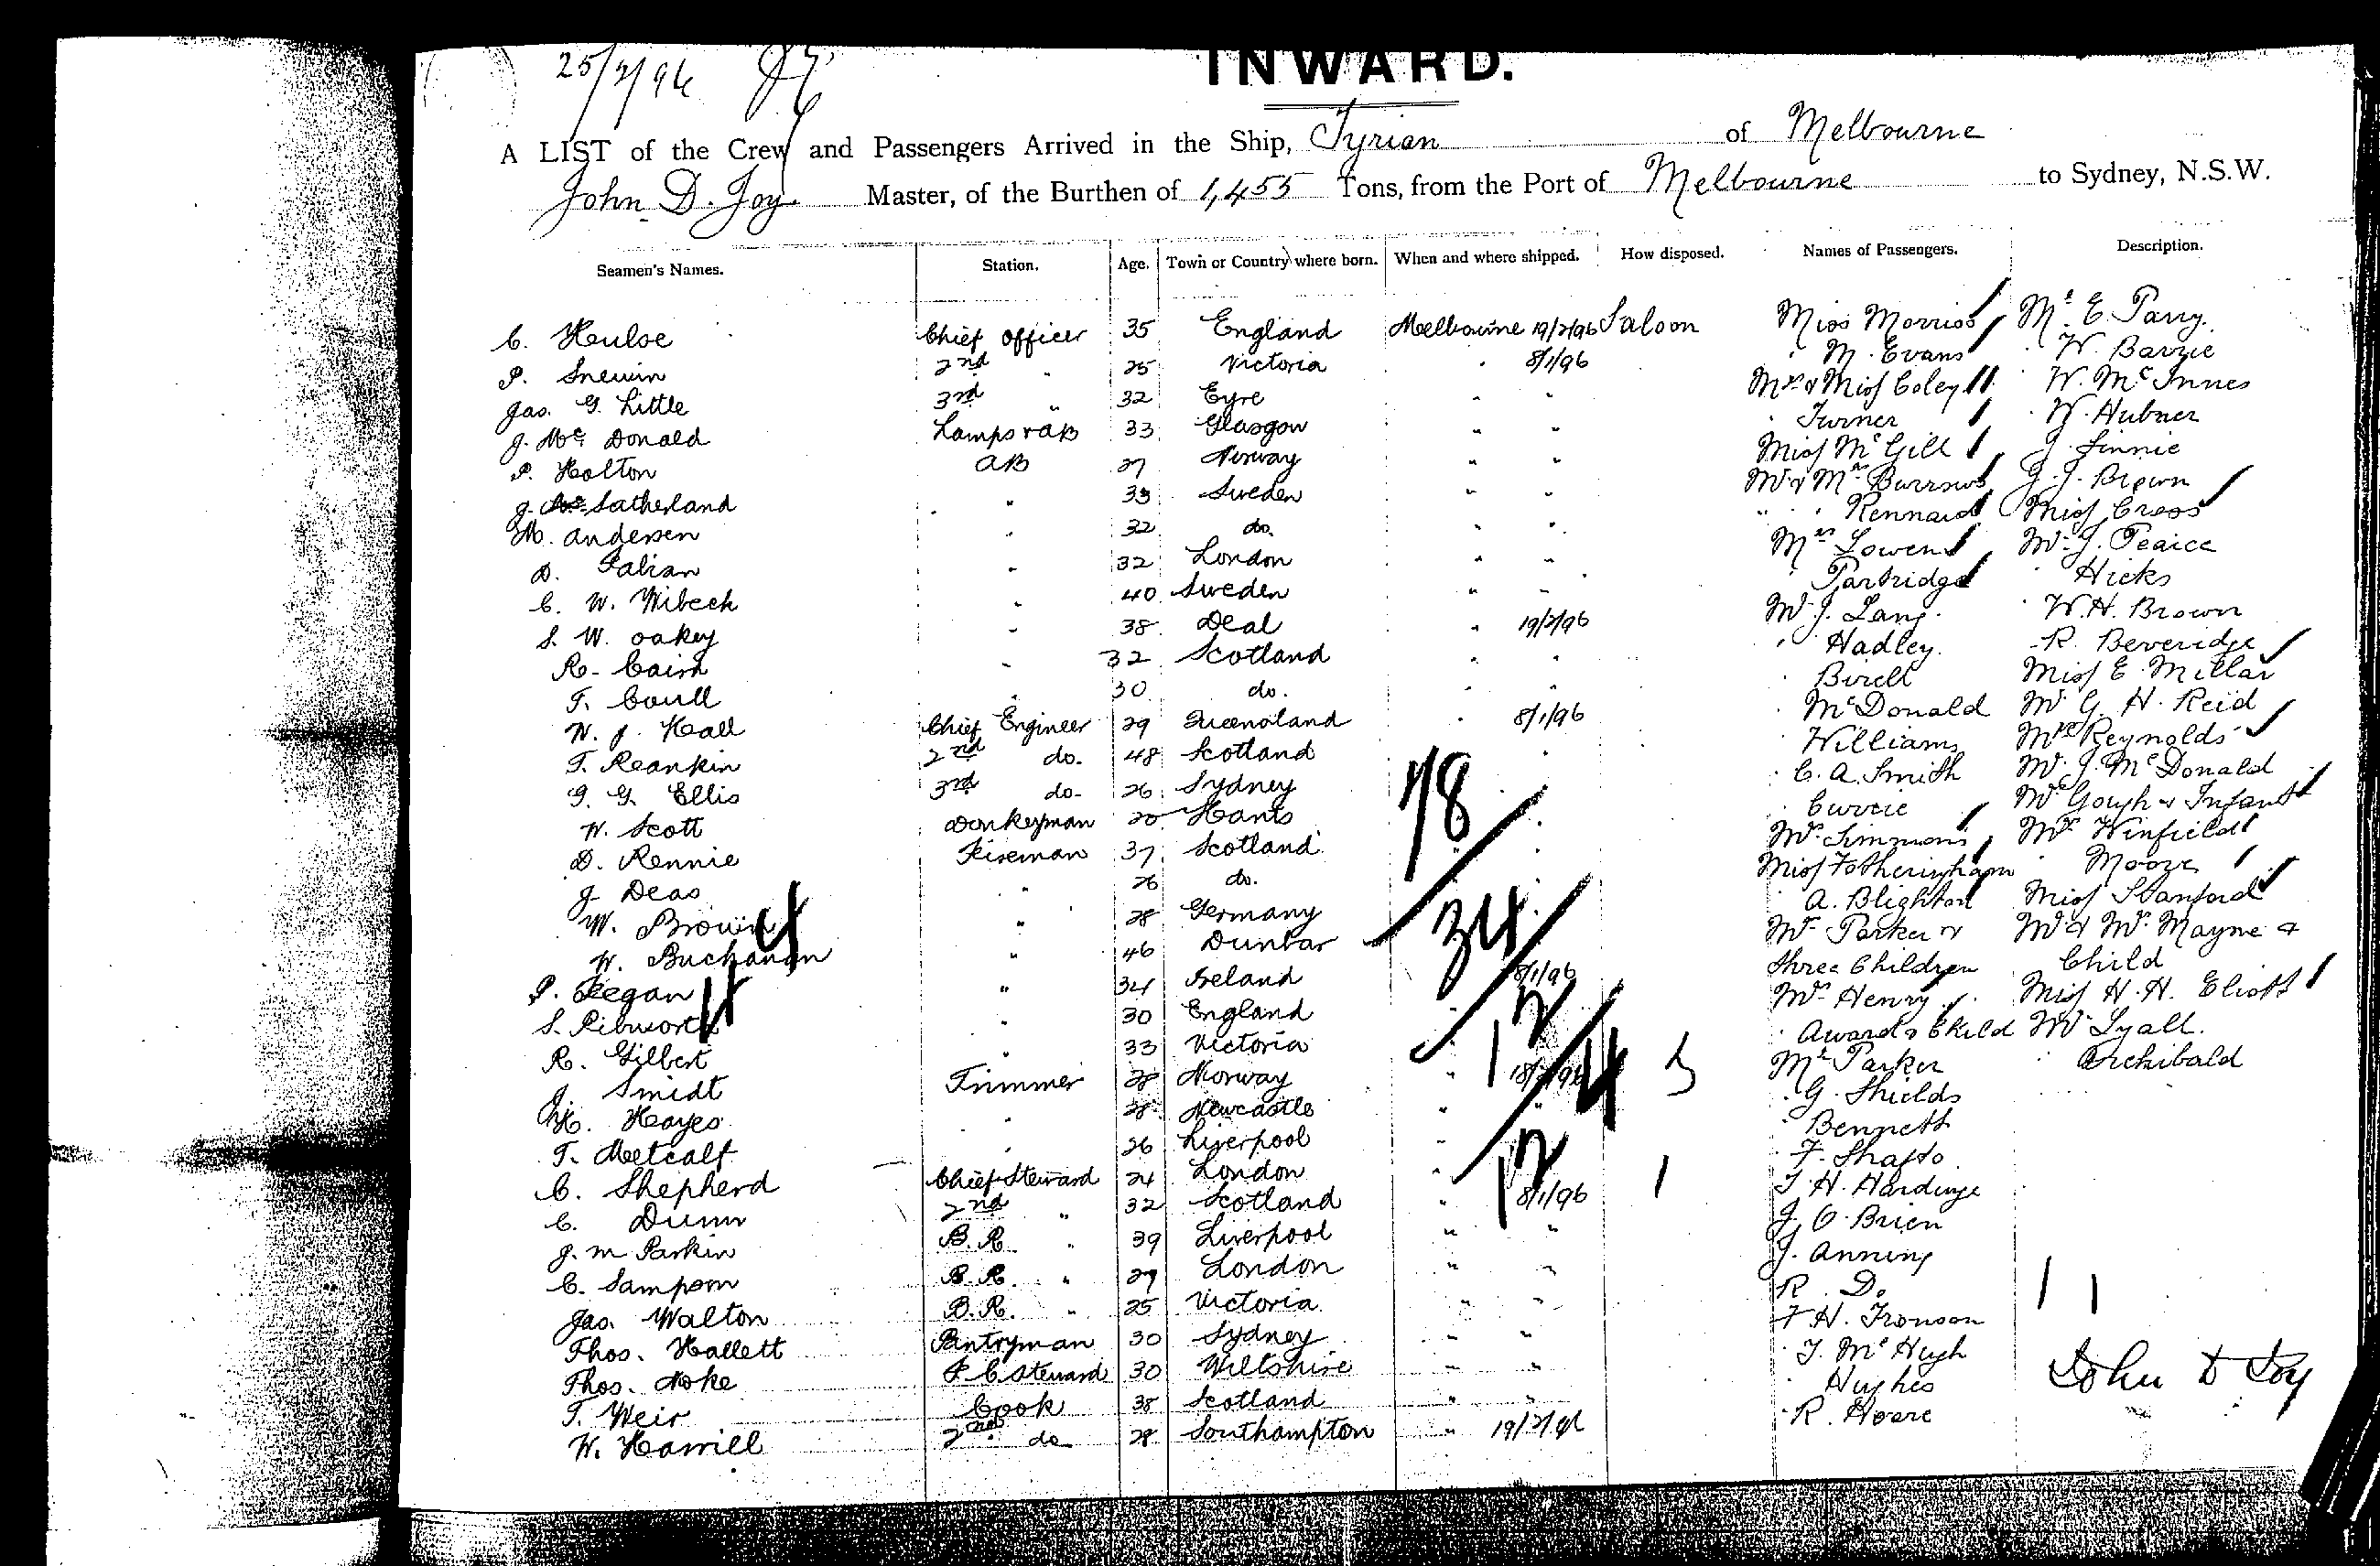 25/2/96
INWARD.
A LIST of the Crew and Passengers Arrived in the Ship, Tyrian of Melbourne
John D. Joy Master, of the Burthen of 1,455 Tons, from the Port of Melbourne to Sydney, N.S.W.
Seamen's Names. Station. Age. Town or Country where born. When and where shipped. How disposed. Names of Passengers. Description.
C. Hulse Chief Officer 35 England Melbourne 19/2/96 Saloon Miss Morriss Mr E. Parry
P. Snewin 2nd " 25 Victoria " 8/1/96 " M. Evans " W. Barrie
Jas. G. Little 3rd " 32 Eyre " " Mrs & Miss Coley " W. McInnes
J. Mc Donald Lamps & AB 33 Glasgow " " " Turner " W. Hubner
P. Holton AB 27 Norway " " Miss McGill J. Finnie
J. Satherland " 33 Sweden " " Mr & Mrs Burrows J. J. Brown
M. Andersen " 32 do. " " " " Rennard Miss Cross
D. Falian " 32 London " " Mrs Lowens Mr J. Pearce
C. W. Wibeck " 40 Sweden " " " Partridge " Hicks
S. W. Oakey " 38 Deal " 19/2/96 Mr J. Lang " W. H. Brown
R. Cairn " 32 Scotland " " " Hadley R. Beveridge
T. Coull " 30 do. " " " Birell Miss E. Millar
W. J. Hall Chief Engineer 29 Queensland " 8/1/96 " McDonald Mr G. H. Reid
T. Reankin 2nd do. 48 Scotland " Williams Mrs Reynolds
G. G. Ellis 3rd do. 26 Sydney 78 " C. A. Smith Mr J. McDonald
W. Scott Donkeyman 20 Hants " Currie Mrs Gough & Infant
D. Rennie Fireman 37 Scotland Mrs Simmons Mrs Winfield
J Deas " 26 do. Miss Fotheringham " Moore
W. Brown " 28 Germany 34 " A. Blighton Miss Stanford
W. Buchanan " 46 Dunbar Mrs Parker & Mr & Mrs Mayne &
P. Regan " 34 Ireland 8/1/96 three Children Child
S. Pibworth " 30 England 12 Mrs Henry Miss H. H. Eliott
R. Gilbert " 33 Victoria " Award & Child Mr Lyall
J. Smidt Trimmer 28 Norway " 4 3 Mr Parker " Archibald
H. Hayes " 28 Newcastle " " G. Shields
T. Metcalf " 26 Liverpool " 12 " Bennett
C. Shepherd Chief Steward 24 London " F. Shafto
C. Dunn 2nd " 32 Scotland " 8/1/96 1 T. H. Hardinge
J. M Parkin B. R. " 39 Liverpool " " J. O'Brien
C. Sampson B. R. " 27 London " " J. Anning
Jas. Walton B. R. " 25 Victoria " " R. Do
Thos. Hallett Pantryman 30 Sydney " " F H. Tronson
Thos. Noke F. C. Steward 30 Wiltshire " " T. McHugh
T. Weir Cook 38 Scotland " " " Hughes
W. Hamill 2nd do 28 Southampton " 19/2/96 R. Hoare
John D Joy